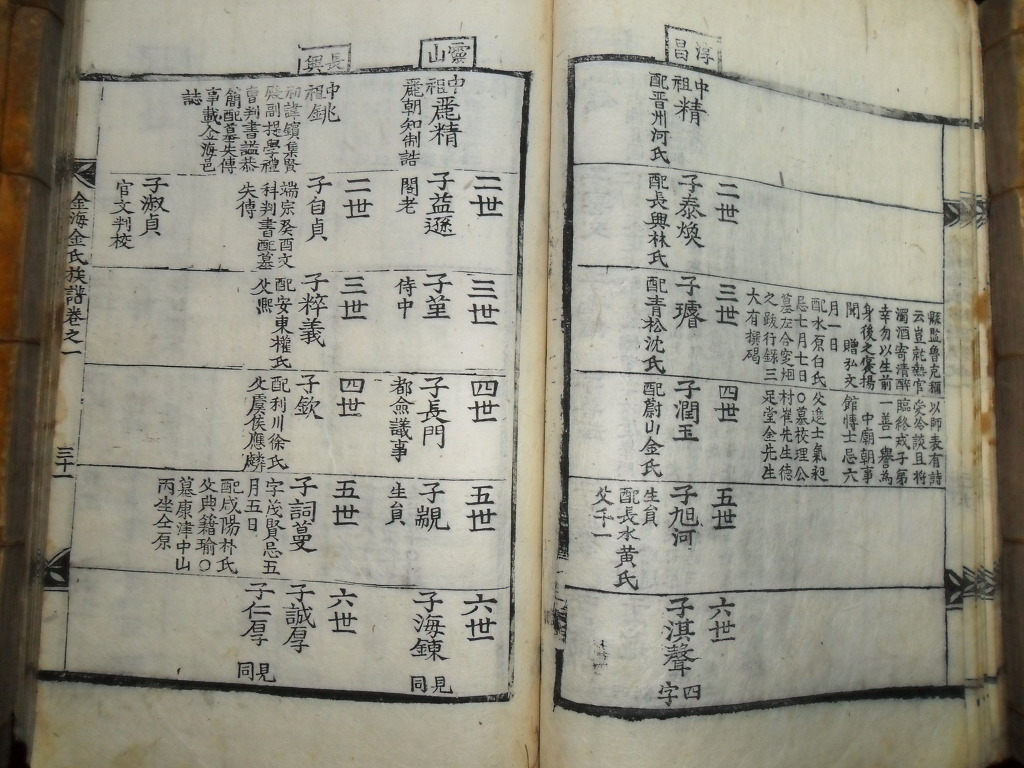 縣監魯克稱以師表有詩
濁酒寄清醉臨終戒子第
幸勿以生前一善一譽為
身後之褒揚 中廟朝事
聞 贈弘文館博士忌六
月一日
配水原白氏父進士氣昶
忌七月七日○墓校理公
墓左合窆烟村崔先生德
之跋行錄三足堂金先生
大有撰碣
淳昌
中祖精
配晋州河氏
二世
子泰煥
配長興林氏
三世
子璿
配青松沈氏
四世
子潤玉
配蔚山金氏
五世
子旭河
生員
配長水黄氏
父千一
六世
子淇聲
四字
靈山
中祖麗精
麗朝知制誥
二世
子益遜
閣老
三世
子堇
侍中
四世
子長門
都僉議事
五世
子覾
生員
六世
子海鍊
見同
長興
中祖銚
初諱鑌集賢
殿副提學禮
曹判書謚恭
簡配墓失傳
事載金海邑
誌
二世
子自貞
端宗癸酉文
科判書配墓
失傳
子淑貞
官文判校
三世
子粹義
配安東權氏
父熙
四世
子欽
配利川徐氏
父虞侯應麟
五世
子詞蔓
字茂賢忌五
月五日
配咸陽朴氏
父典籍瑜○
墓康津中山
丙坐仝原
六世
子誠厚
子仁厚
見同
金海金氏族譜卷之一
三十一